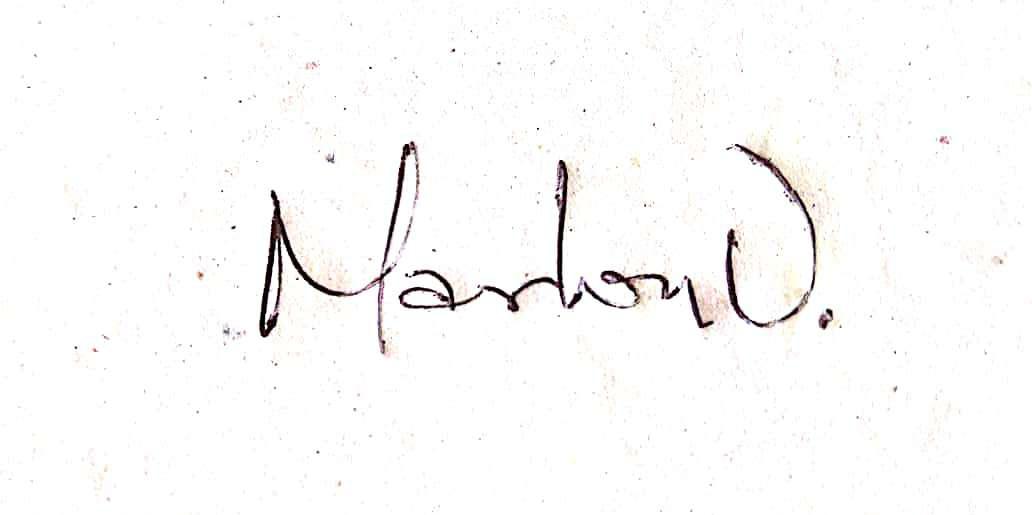 Marlon D.